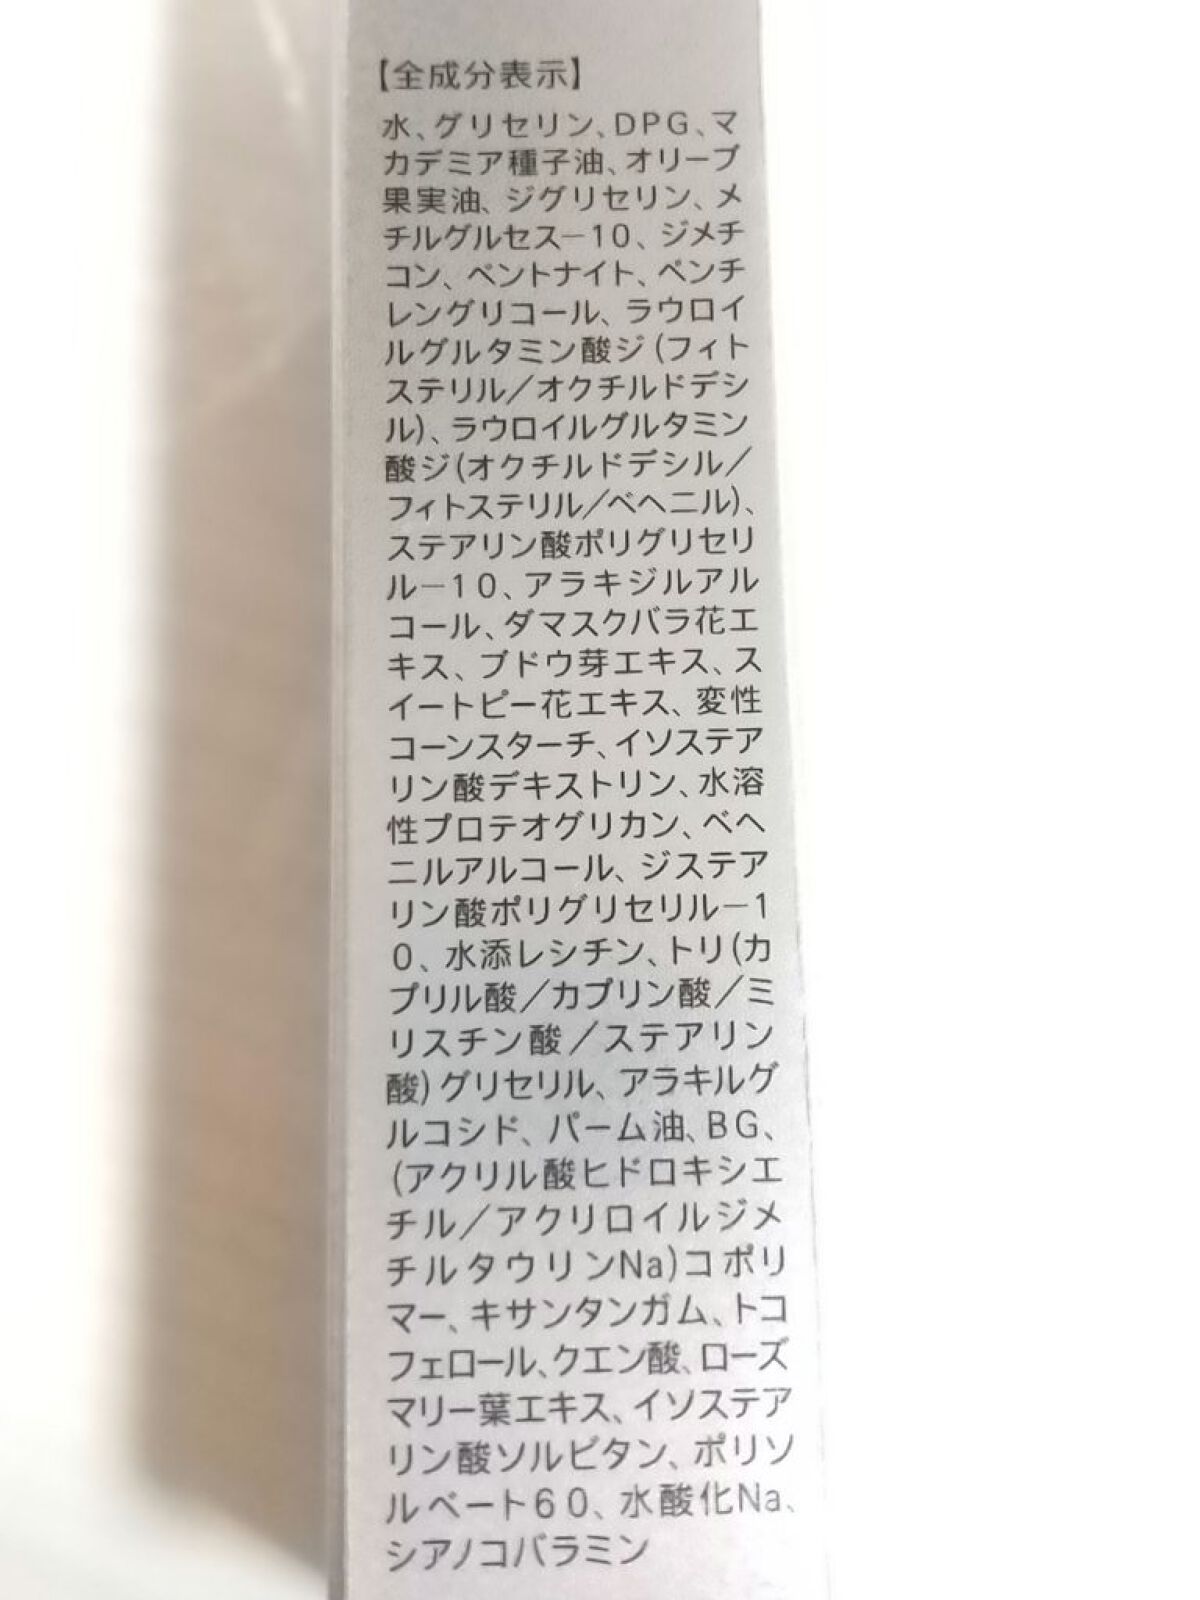 【全成分表示】
水、グリセリン、DPG、マ
カデミア種子油、オリーブ
果実油、ジグリセリン、メ
チルグルセス－10、ジメチ
コン、ベントナイト、ペンチ
レングリコール、ラウロイ
ルグルタミン酸ジ(フィト
ステリル／オクチルドデシ
ル)、ラウロイルグルタミン
酸ジ(オクチルドデシル／
フィトステリル／ベヘニル)、
ステアリン酸ポリグリセリ
ル－10、アラキジルアル
コール、ダマスクバラ花エ
キス、ブドウ芽エキス、ス
イートピー花エキス、変性
コーンスターチ、イソステア
リン酸デキストリン、水溶
性プロテオグリカン、ベヘ
ニルアルコール、ジステア
リン酸ポリグリセリル－1
0、水添レシチン、トリ(カ
プリル酸／カプリン酸／ミ
リスチン酸／ステアリン
酸)グリセリル、アラキルグ
ルコシド、パーム油、BG、
(アクリル酸ヒドロキシエ
チル／アクリロイルジメ
チルタウリンNa)コポリ
マー、キサンタンガム、トコ
フェロール、クエン酸、ローズ
マリー葉エキス、イソステア
リン酸ソルビタン、ポリソ
ルベート60、水酸化Na、
シアノコバラミン